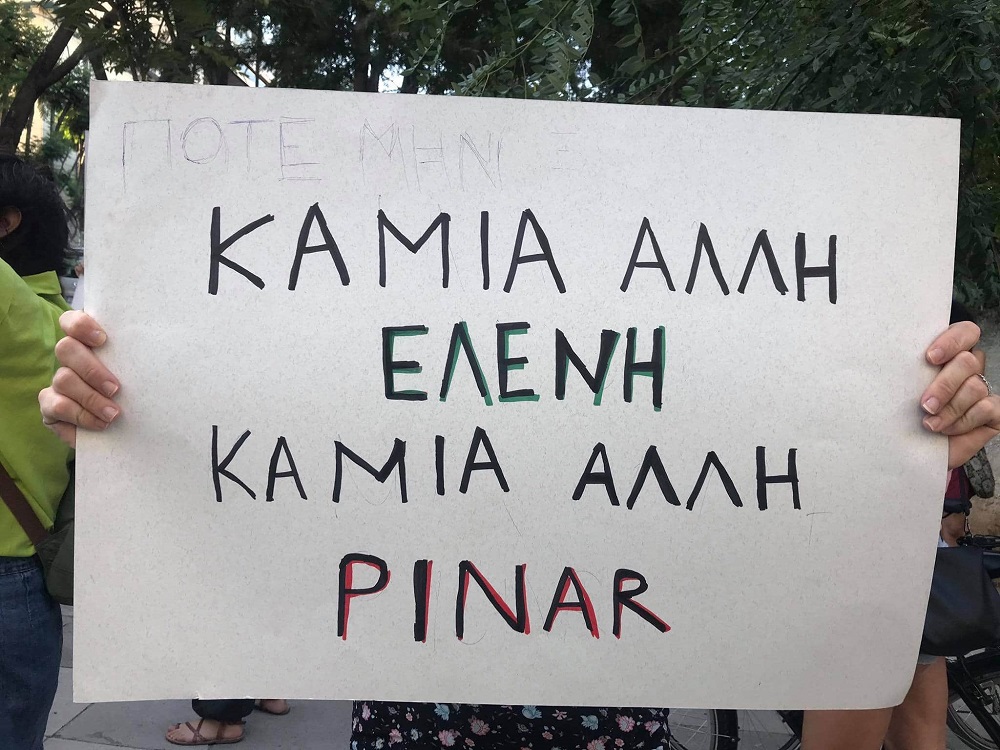 ΠΟΤΕ ΜΗΝ Ξ
ΚΑΜΙΑ ΑΛΛΗ
ΕΛΕΝΗ
ΚΑΜΙΑ ΑΛΛΗ
PINAR